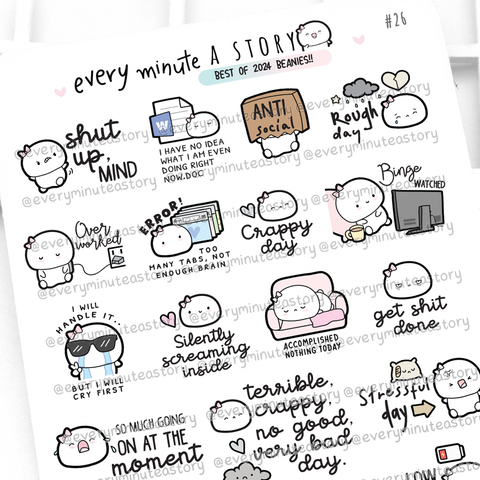 #26
every minute A STORY
BEST OF 2024 BEANIES!!
shut
up,
MIND
W
I HAVE NO IDEA
WHAT I AM EVEN
DOING RIGHT
NOW.DOC
ANTI
social
Rough
day
@everyminuteastory
Over
worked
ERROR!
TOO
MANY TABS, NOT
ENOUGH BRAIN
Crappy
day
Binge
WATCHED
@everyminuteastory
I WILL
HANDLE IT..
BUT I WILL
CRY FIRST
Silently
screaming
inside
ACCOMPLISHED
NOTHING TODAY
get shit
done
@everyminuteastory
SO MUCH GOING
ON AT THE
moment
terrible,
crappy,
no good,
very bad
day.
Stressful
day
@everyminuteastory